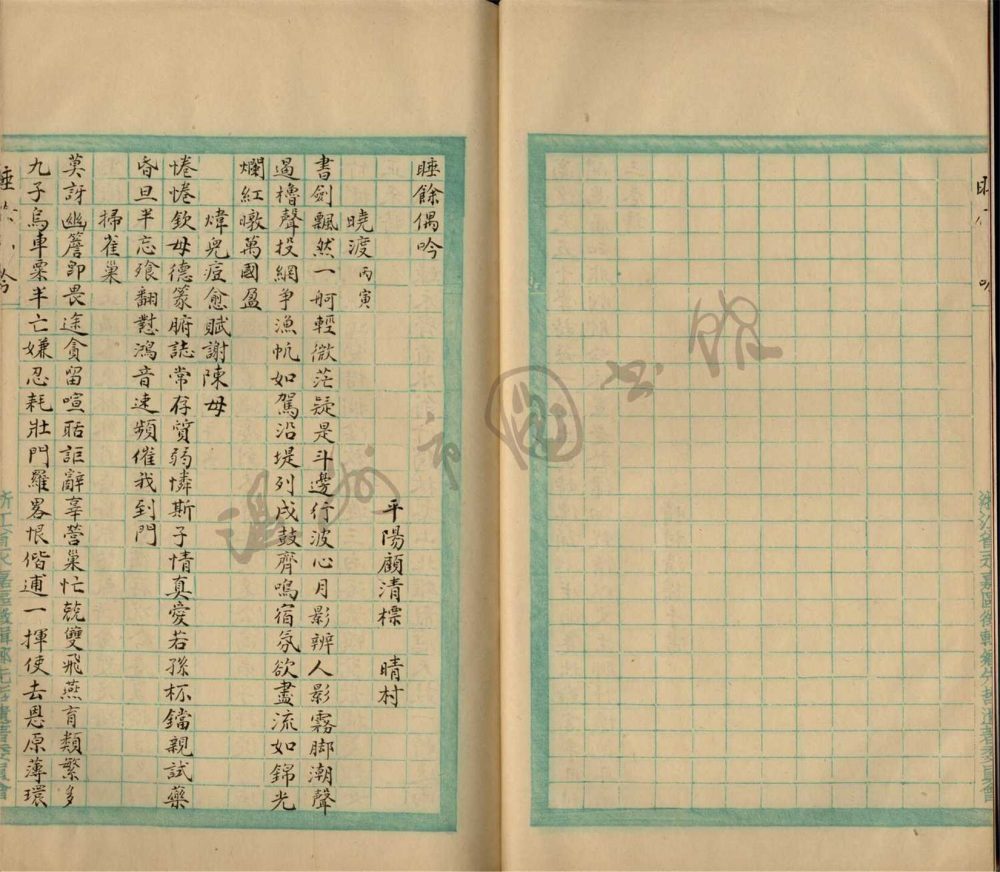 睡餘偶吟
平陽顧清標 晴村
曉渡丙寅
書劍飄然一舸輕微茫疑是斗邊行波心月影辨人影霧脚潮聲
過櫓聲投網爭漁帆如駕沿堤列戍鼓齊鳴宿氛欲盡流如錦光
爛紅暾萬國盈
煒兒痘愈賦謝陳母
惓惓欽母德篆腑誌常存質弱憐斯子情真愛若孫杯鐺親試藥
昏旦半忘飱翻懟鴻音速頻催我到門
掃雀巢
莫訝幽簷卽畏途貪留喧聒詎辭辜營巢忙兢雙飛燕育類繁多
九子烏車粟半亡嫌忍耗壯門羅畧恨偕逋一揮使去恩原薄環
浙江省永嘉區徵輯鄉先哲遺著委員會
浙江省永嘉區徵輯鄉先哲遺著委員會
溫州市圖書館